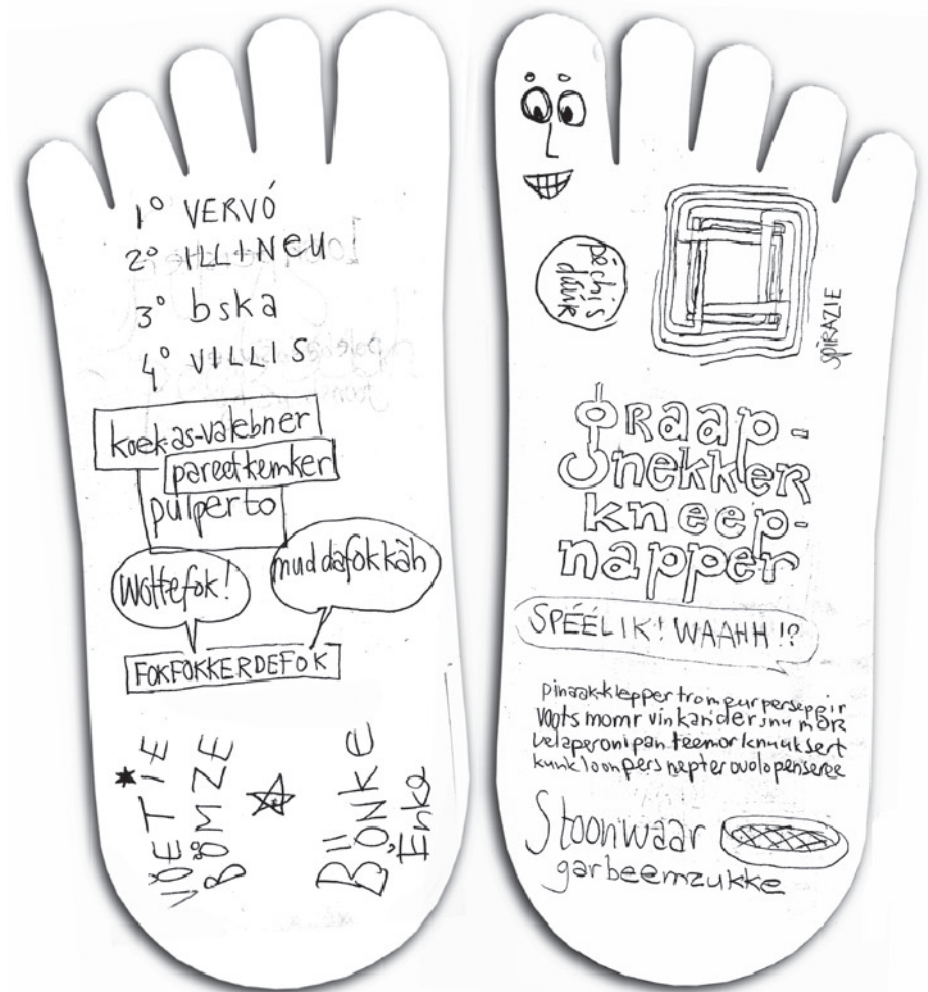 1° VERVÓ
2° ILLINEU
3° bska
4° VILLIS
koek-as-valebner
pareetkemker
pulperto
wottefok!
muddafokkah
FOKFOKKERDEFOK
VÖETIE
BÖMZE
BÜ
BÖNKE
Enka
pèchis
dünk
SPIRAZIE
graap-
snekker
kneep-
napper
SPÉÉLIK! WAAHH!?
pinaak-klepper trompur perseppir
voots momr vinkandersnu mor
velaperoni pan teemor knuuksert
kunkloonpers nepter ovolopenseree
Stoonwaar
garbeemzukke